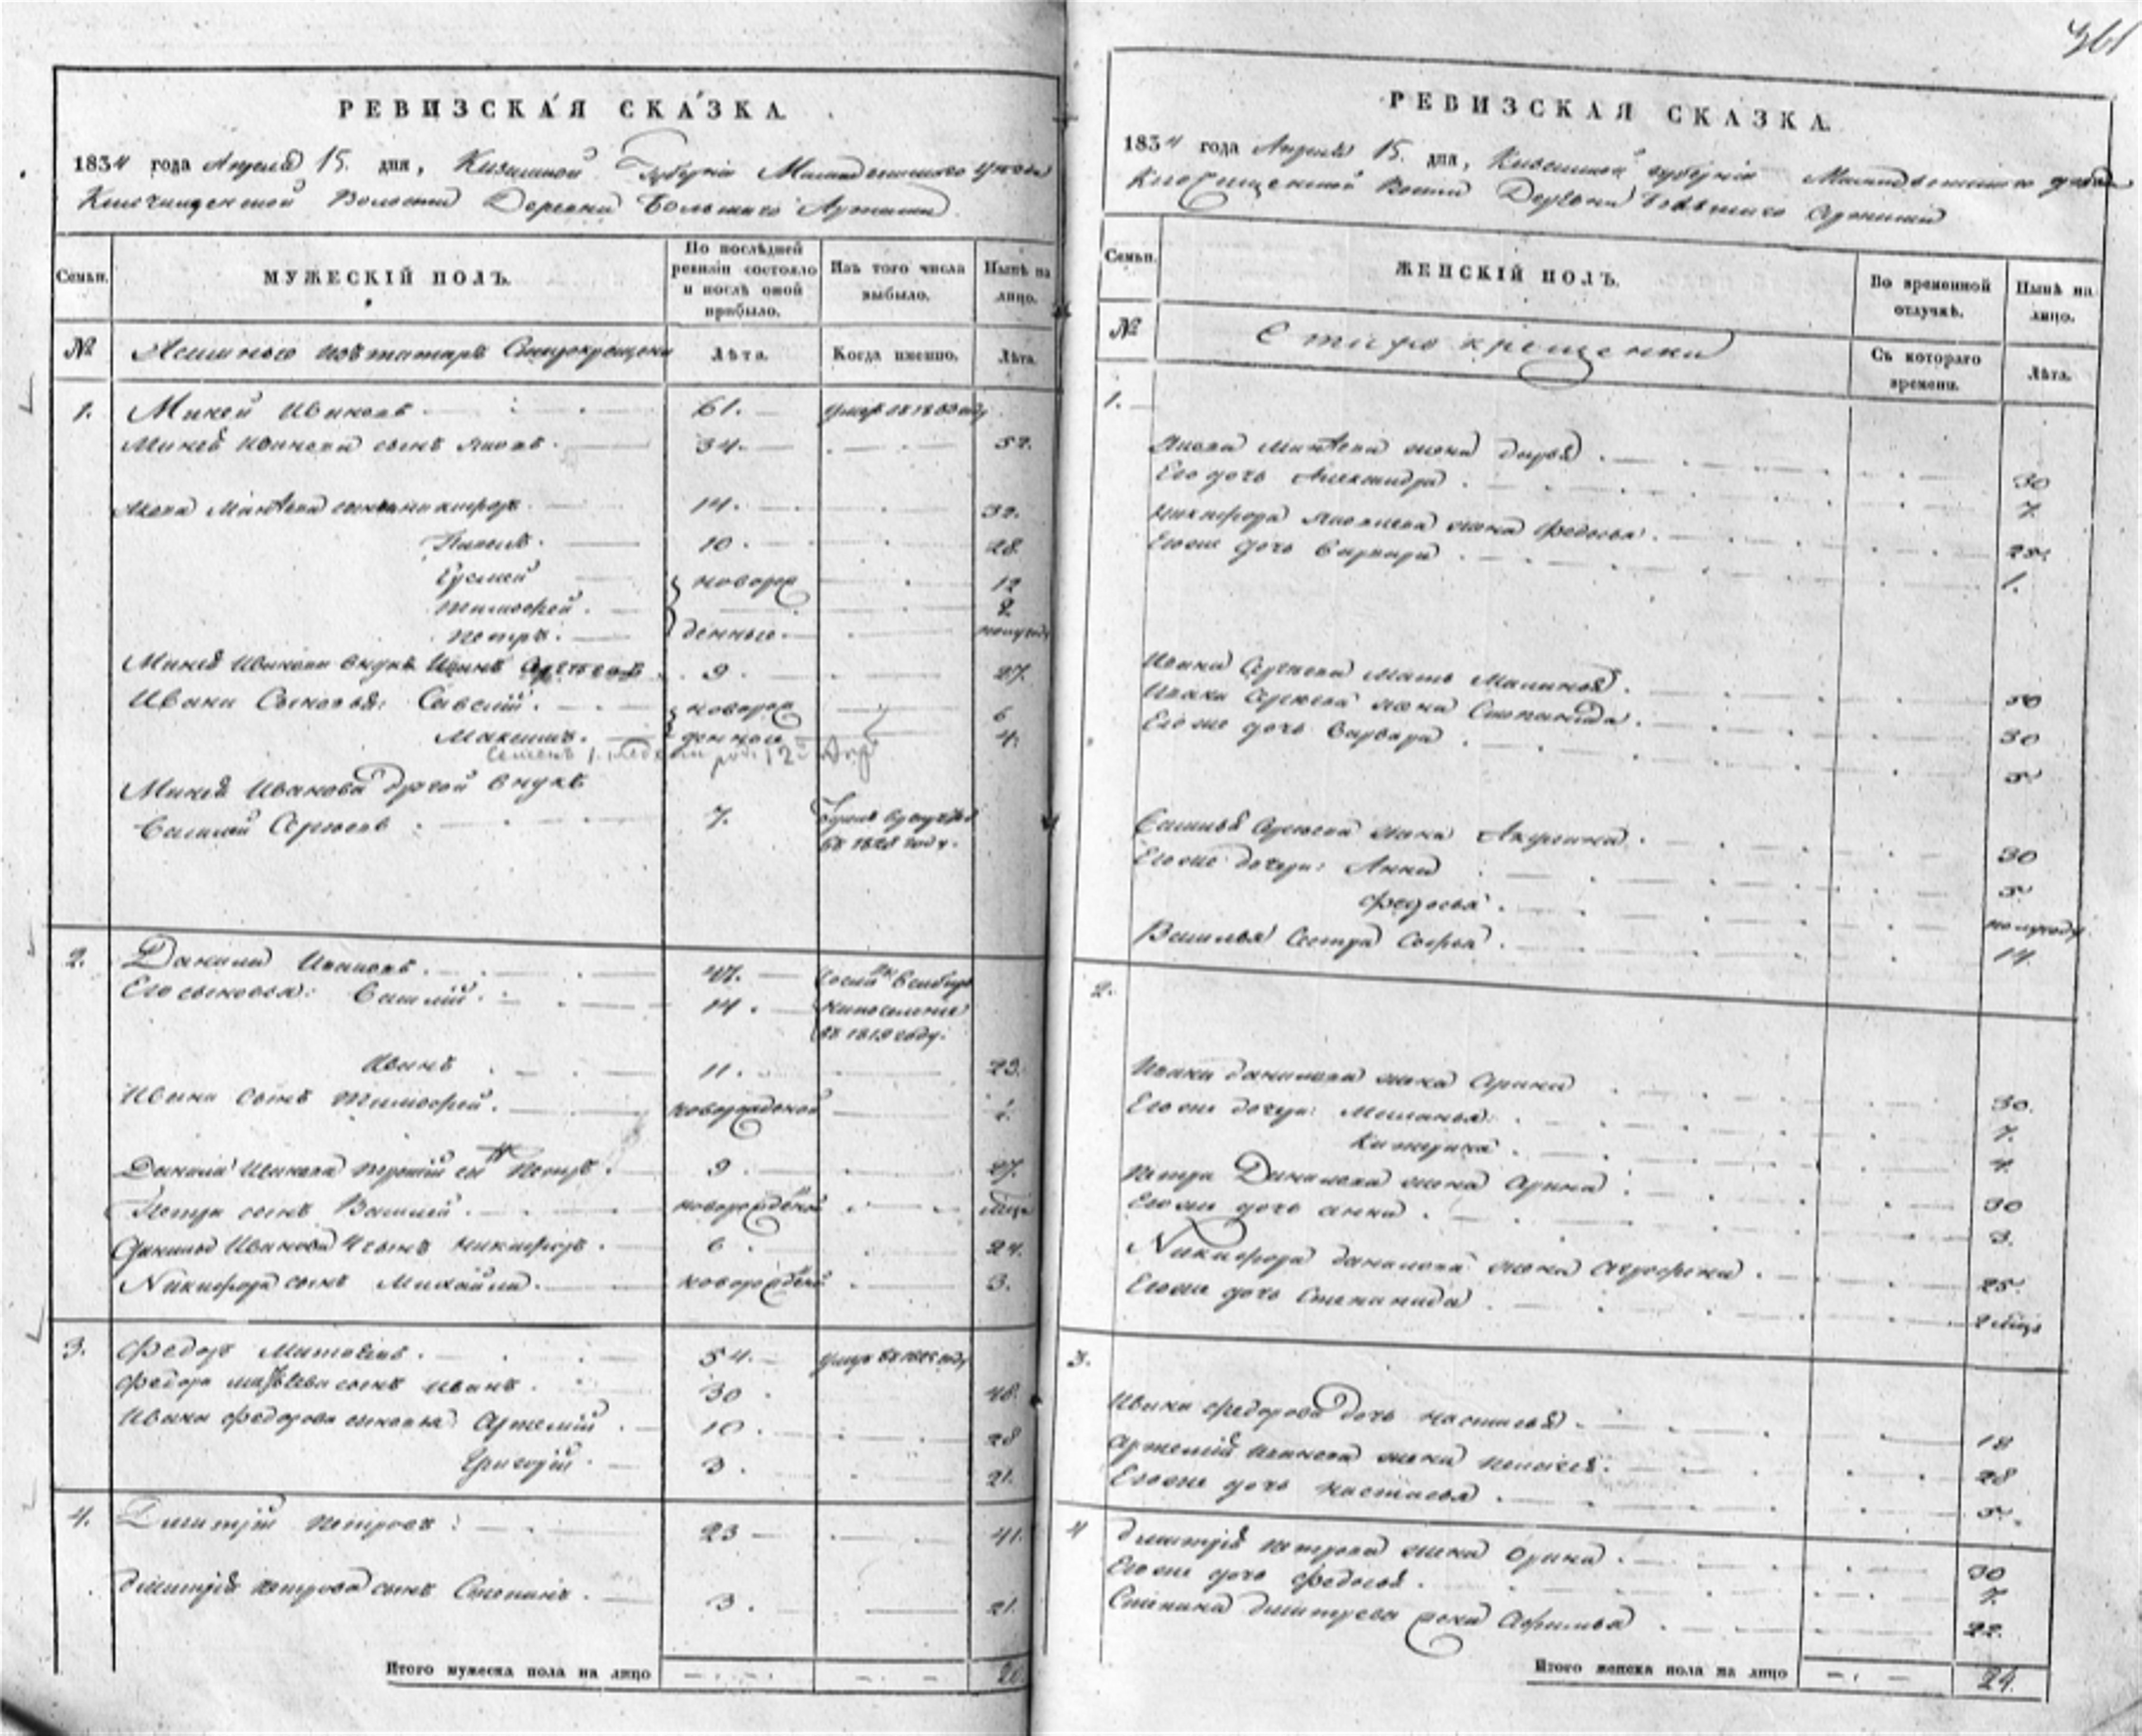 361
РЕВИЗСКАЯ СКАЗКА
1834 года Апреля 15. дня, Казанской Губернiи Мамадышского уезда
Ключищенской Волости Деревни Большаго Арташи
Семьи.
МУЖЕСКIЙ ПОЛЪ.
По послѣдней ревизiи состояло и послѣ оной прибыло.
Изъ того числа выбыло.
Нынѣ на лицо.
№
изъ татаръ
Лѣта.
Когда именно.
Лѣта.
1. Миней Ивановъ 61. умеръ въ 18 году
Минея Иванова сынъ Яковъ 34. 52.
Якова Минѣева сыновья Никифоръ 14. 32.
10. 28
новорож 12
Тимофей. 2
Петръ. денные. полугода
Минея Иванова внукъ Иванъ 9. 27.
Ивана Сыновья: Савелiй. новорож 6
Максимъ. денные 4.
Семенъ 1. недели
Минея Иванова другой внукъ
Василий Сергеевъ 7.
въ 1828 году.
2. Данила Ивановъ. 47.
Его сыновья: Василiй. 14.
на поселение
въ 1819 году.
Иванъ 11. 29.
Ивана сынъ Тимофей. новорожденой
Данила Иванова третiй сынъ Петръ. 9. 27.
Петра сынъ Василей. новорожденой
Данила Иванова 4 сынъ Никифоръ. 6. 24.
Никифора сынъ Михайла. новорожденой 3.
3. Федоръ Матвѣевъ. 54. умеръ въ году
Федора Матвѣева сынъ Иванъ. 30. 48.
Ивана Федорова сыновья: Артемiй. 10. 28
Григорiй. 3. 21.
4. Дмитрiй Петровъ: 23 41.
Дмитрiя Петрова сынъ Степанъ. 3. 21.
Итого мужеска пола на лицо 20
РЕВИЗСКАЯ СКАЗКА.
1834 года Апреля 15. дня, Казанской губернiи Мамадышского уезда
Ключищенской Волости Деревни Большаго Арташи
Семьи.
ЖЕНСКIЙ ПОЛЪ.
Во временной отлучкѣ.
Нынѣ на лицо.
№
Старокрещенки
Съ котораго времени.
Лѣта.
1.
Якова Минѣева жена Дарья. 30
Его дочь Александра. 7.
Никифора Яковлева жена Федосья. 25.
Его же дочь Варвара. 1.
Ивана Сергеева мать Маланья. 50
Ивана Сергеева жена Степанида. 30
Его же дочь Варвара. 5
Василья Сергеева жена Акулина. 30
Его же дочери: Анна 5
Федосья. полугоду.
Василья Сестра Софья. 14.
2.
Ивана Данилова жена Арина 30.
Его же дочери: Маланья. 7.
Катерина. 4
Петра Данилова жена Арина. 30
Его же дочь Анна. 3.
Никифора Данилова жена Аграфена. 25.
Его же дочь Степанида.
3.
Ивана Федорова дочь Настасья. 18
Артемiя Иванова жена Пелагея. 28
Его же дочь Настасья. 5.
4 Дмитрiя Петрова жена Орина. 30
Его же дочь Федосья. 7.
Степана Дмитрева жена 22.
Итого женска пола на лицо 24.